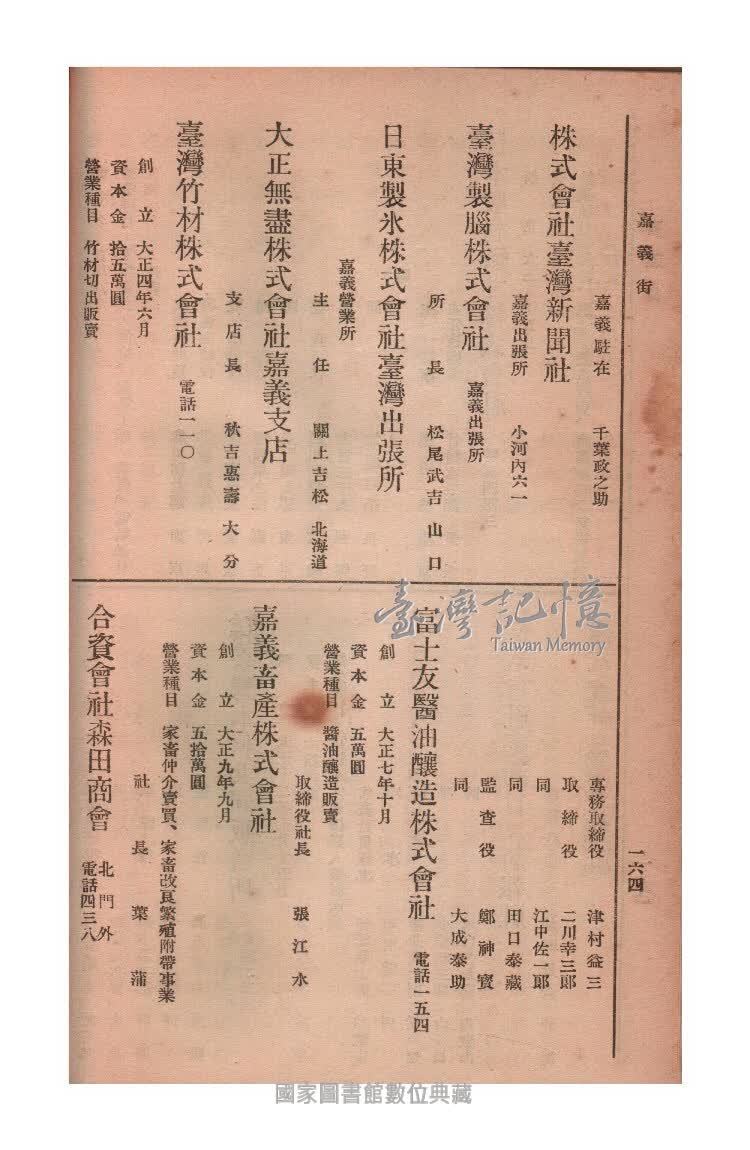 嘉義街
一六四
嘉義駐在 千葉政之助
株式會社臺灣新聞社
嘉義出張所 小河內六一
臺灣製腦株式會社 嘉義出張所
所長 松尾武吉 山口
日東製氷株式會社臺灣出張所
嘉義營業所
主任 關上吉松 北海道
大正無盡株式會社嘉義支店
支店長 秋吉惠壽 大分
臺灣竹材株式會社 電話一一〇
創立 大正四年六月
資本金 拾五萬圓
營業種目 竹材切出販賣
專務取締役 津村益三
取締役 二川幸三郎
同 江中佐一郎
同 田口泰藏
監查役 鄭神寶
同 大成泰助
富士友醬油釀造株式會社 電話一五四
創立 大正七年十月
資本金 五萬圓
營業種目 醬油釀造販賣
取締役社長 張江水
嘉義畜產株式會社
創立 大正九年九月
資本金 五拾萬圓
營業種目 家畜仲介賣買、家畜改良繁殖附帶事業
社長 葉蒲
合資會社森田商會 北門外
電話四三八
臺灣記憶
Taiwan Memory
國家圖書館數位典藏